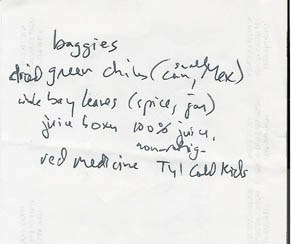 baggies
diced green chiles (small can, Mex)
whole bay leaves (spice, jar)
juice boxes 100% juice,
non-refrig.
red medicine Tyl Cold Kids